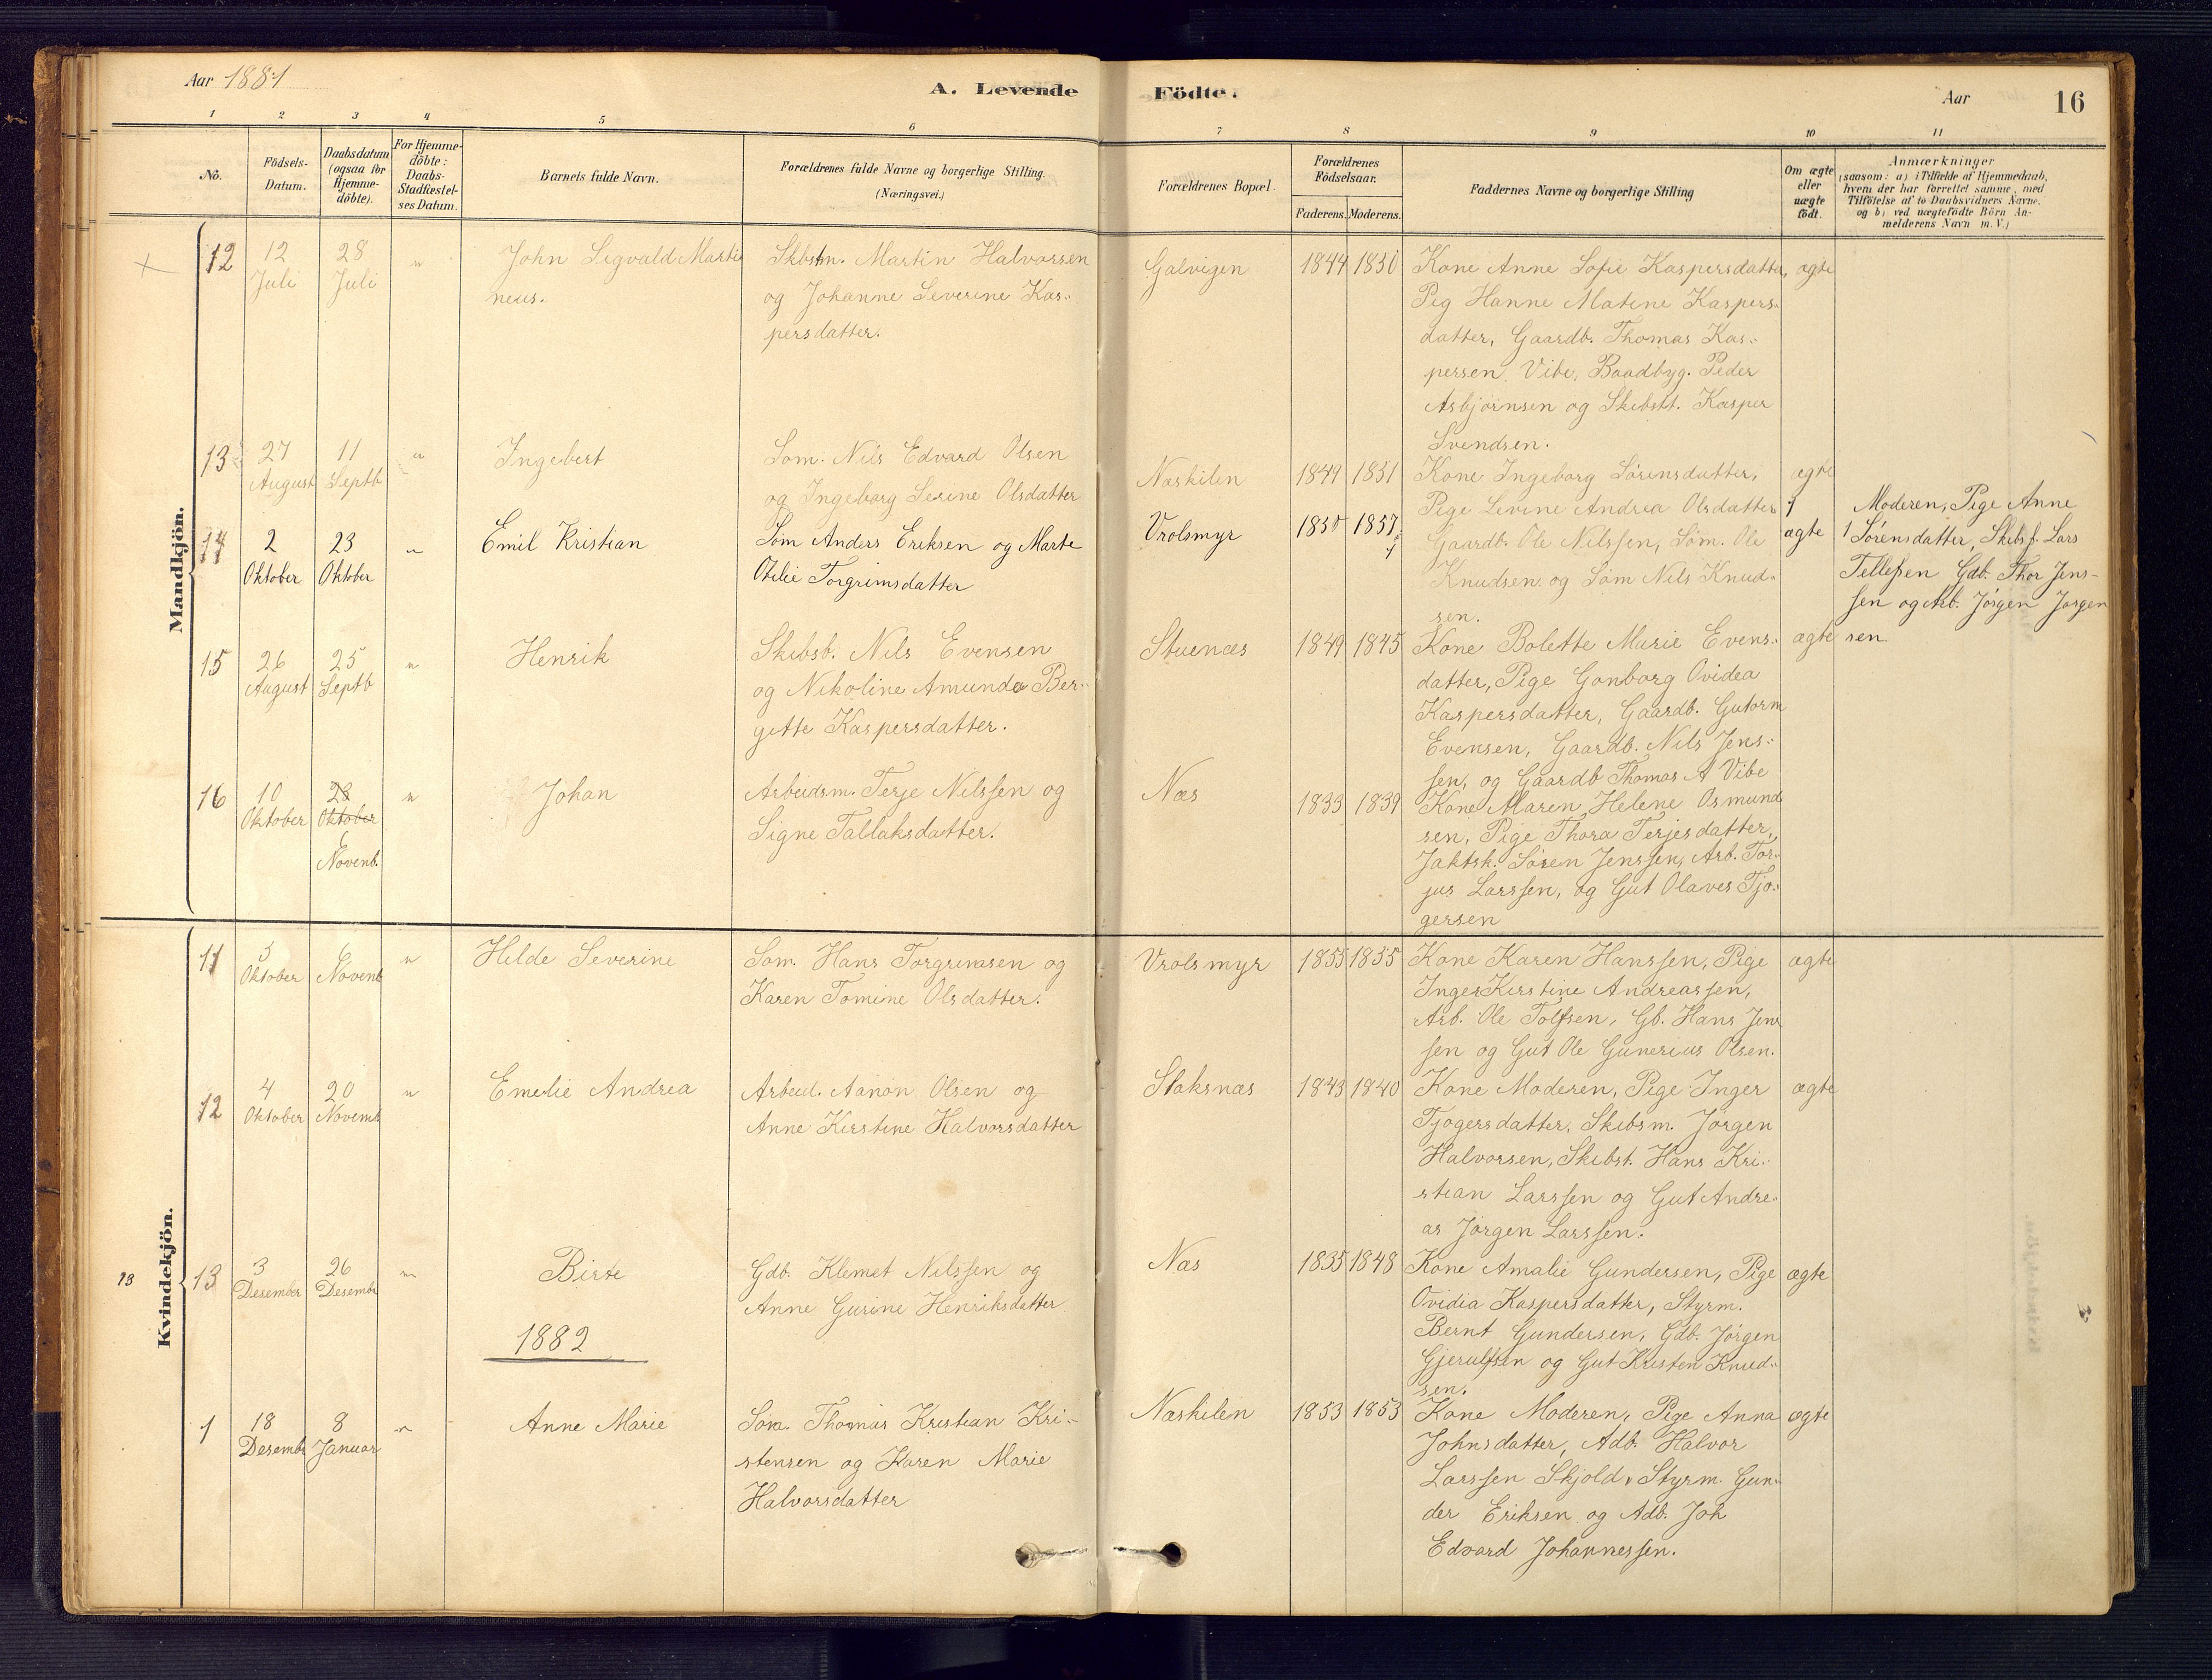 Aar 1881
A. Levende Födte.
Aar
16
1 2 3 4 5 6 7 8 9 10 11
No.
Födsels-
Datum.
Daabsdatum
(ogsaa for
Hjemme-
döbte).
For Hjemme-
döbte:
Daabs-
Stadfæstel-
ses Datum.
Barnets fulde Navn.
Forældrenes fulde Navne og borgerlige Stilling.
(Næringsvei.)
Forældrenes Bopæl.
Forældrenes
Födselsaar.
Faderens. Moderens.
Faddernes Navne og borgerlige Stilling
Om ægte
eller
uægte
födt.
Anmærkninger
(saasom: a) i Tilfælde af Hjemmedaab,
hvem der har forrettet samme, med
Tilföielse af to Daabsvidners Navne.
og b) ved uægtefödte Börn An-
melderens Navn m. V.)
Mandkjön.
12
12
Juli
28
Juli
"
John Sigvald Marti
neus.
Skbstm. Martin Halvorsen
og Johanne Severine Kas-
persdatter.
Galvigen
1844 1850
Kone Anne Sofie Kaspersdatter,
Pig Hanne Matine Kaspers-
datter, Gaardb. Thomas Kas-
persen Vibe, Baadbyg. Peder
Asbjørnsen og Skibstt. Kasper
Svendsen.
ægte
13
27
August
11
Septb
"
Ingebert
Søm. Nils Edvard Olsen
og Ingeborg Serine Olsdatter
Næskilen
1849 1851
Kone Ingeborg Sørensdatter,
Pige Levine Andrea Olsdatter
Gaardb. Ole Nilssen, Søm. Ole
Knudsen og Søm Nils Knud-
sen.
ægte
14
2
Oktober
23
Oktober
"
Emil Kristian
Søm Anders Eriksen og Marte
Otilie Torgrimsdatter
Vrolsmyr
1850 1857
ægte
Moderen, Pige Anne
Sørensdatter, Skibsf. Lars
Tellefsen Gdb. Thor Jens-
sen og Arb. Jørgen Jørgen
sen.
15
26
August
25
Septb
"
Henrik
Skibsb. Nils Evensen
og Nikoline Amunda Ber-
gitte Kaspersdatter.
Stuenæs
1849 1845
Kone Bolette Marie Evens-
datter, Pige Gonborg Ovidea
Kaspersdatter, Gaardb. Gutorm
Evensen, Gaardb. Nils Jens-
sen, og Gaardb Thomas A Vibe
ægte
16
10
Oktober
23
Oktober
6
Novemb.
"
Johan
Arbeidsm. Terje Nilssen og
Signe Tallaksdatter.
Næs
1833 1839
Kone Maren Helene Osmund
sen, Pige Thora Terjesdatter,
Jaktsk. Søren Jenssen, Arb. Tor-
jus Larssen, og Gut Olaves Tjø-
gersen
Kvindekjön.
11
3
Oktober
6
Novemb
"
Helde Severine
Søm. Hans Torgrimsen og
Karen Tomine Olsdatter.
Vrolsmyr
1855 1855
Kone Karen Hanssen, Pige
Inger Kirstine Andreassen,
Arb. Ole Tolfsen, Gb. Hans Jens
sen og Gut Ole Gunerius Olsen.
ægte
12
4
Oktober
20
Novemb
"
Emelie Andrea
Arbeid. Aanon Olsen og
Anne Kirstine Halvorsdatter
Staksnæs
1843 1840
Kone Moderen, Pige Inger
Tjøgersdatter, Skibsm. Jørgen
Halvorsen, Skibst. Hans Kri-
stian Larssen og Gut Andre-
as Jørgen Larssen.
ægte
13
13
3
Desember
26
Desembr
"
Birte
Gdb. Klemet Nilssen og
Anne Gurine Henriksdatter
Næs
1835 1848
Kone Amalie Gundersen, Pige
Ovidia Kaspersdatter, Styrm.
Bernt Gundersen, Gdb. Jørgen
Gjerulfsen og Gut Kristen Knud-
sen.
ægte
1882
1
18
Desembr
8
Januar
"
Anne Marie
Søm. Thomas Kristian Kri-
stensen og Karen Marie
Halvorsdatter
Næskilen
1853 1853
Kone Moderen, Pige Anna
Johnsdatter, Adb. Halvor
Larssen Skjold, Styrm. Gun-
der Eriksen og Adb. Joh
Edvard Johannessen.
ægte